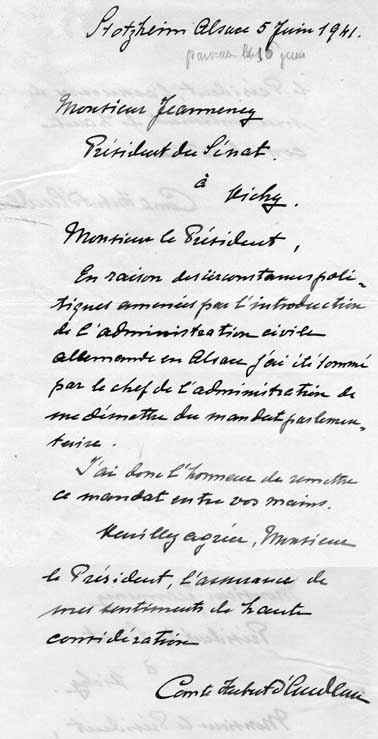 Stotzheim Alsace 5 Juin 1941.
parvenu le 16 juin
Monsieur Jeanneney
Président du Sénat.
à
Vichy.
Monsieur le Président,
En raison des circonstances poli-
tiques amenées par l'introduction
de l'administration civile
allemande en Alsace j'ai été sommé
par le chef de l'administration de
me démettre du mandat parlemen-
taire.
J'ai donc l'honneur de remettre
ce mandat entre vos mains.
Veuillez agréer, Monsieur
le Président, l'assurance de
mes sentiments de haute
considération
Comte Hubert d'Andlau